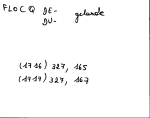 FLOC Q DE- gelande
DU-
(1716) 327, 165
(1717) 327, 167